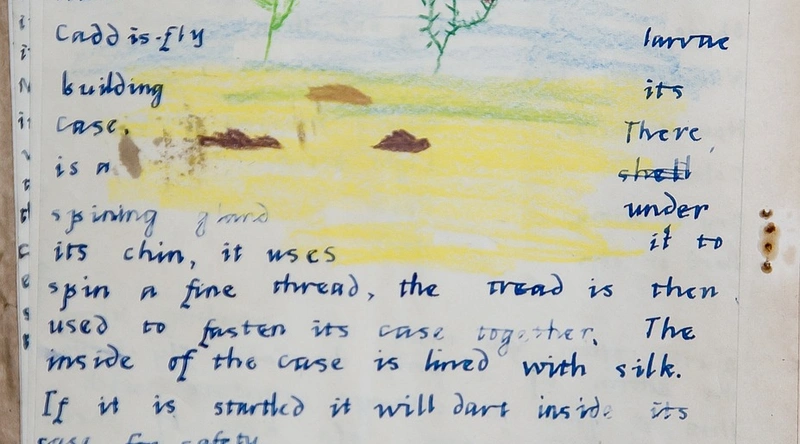 Caddis-fly larvae
building its
case. There
is a shell
spining gland under
its chin, it uses it to
spin a fine thread, the tread is then
used to fasten its case together. The
inside of the case is lined with silk.
If it is startled it will dart inside its
case for safety